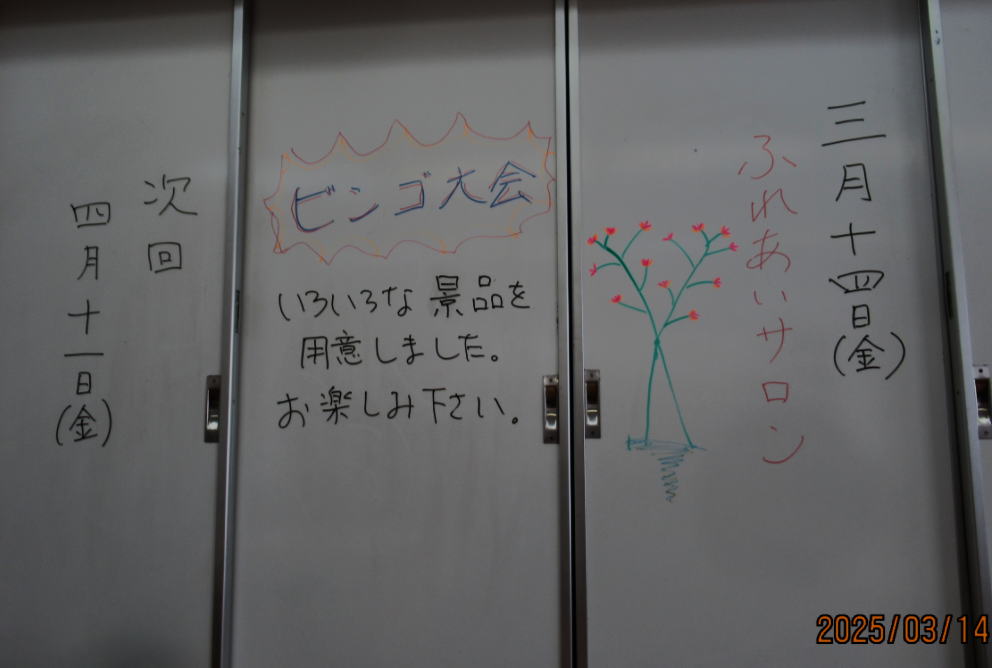 三月十四日(金)
ふれあいサロン
ビンゴ大会
いろいろな景品を
用意しました。
お楽しみ下さい。
次回
四月十一日(金)
2025/03/14